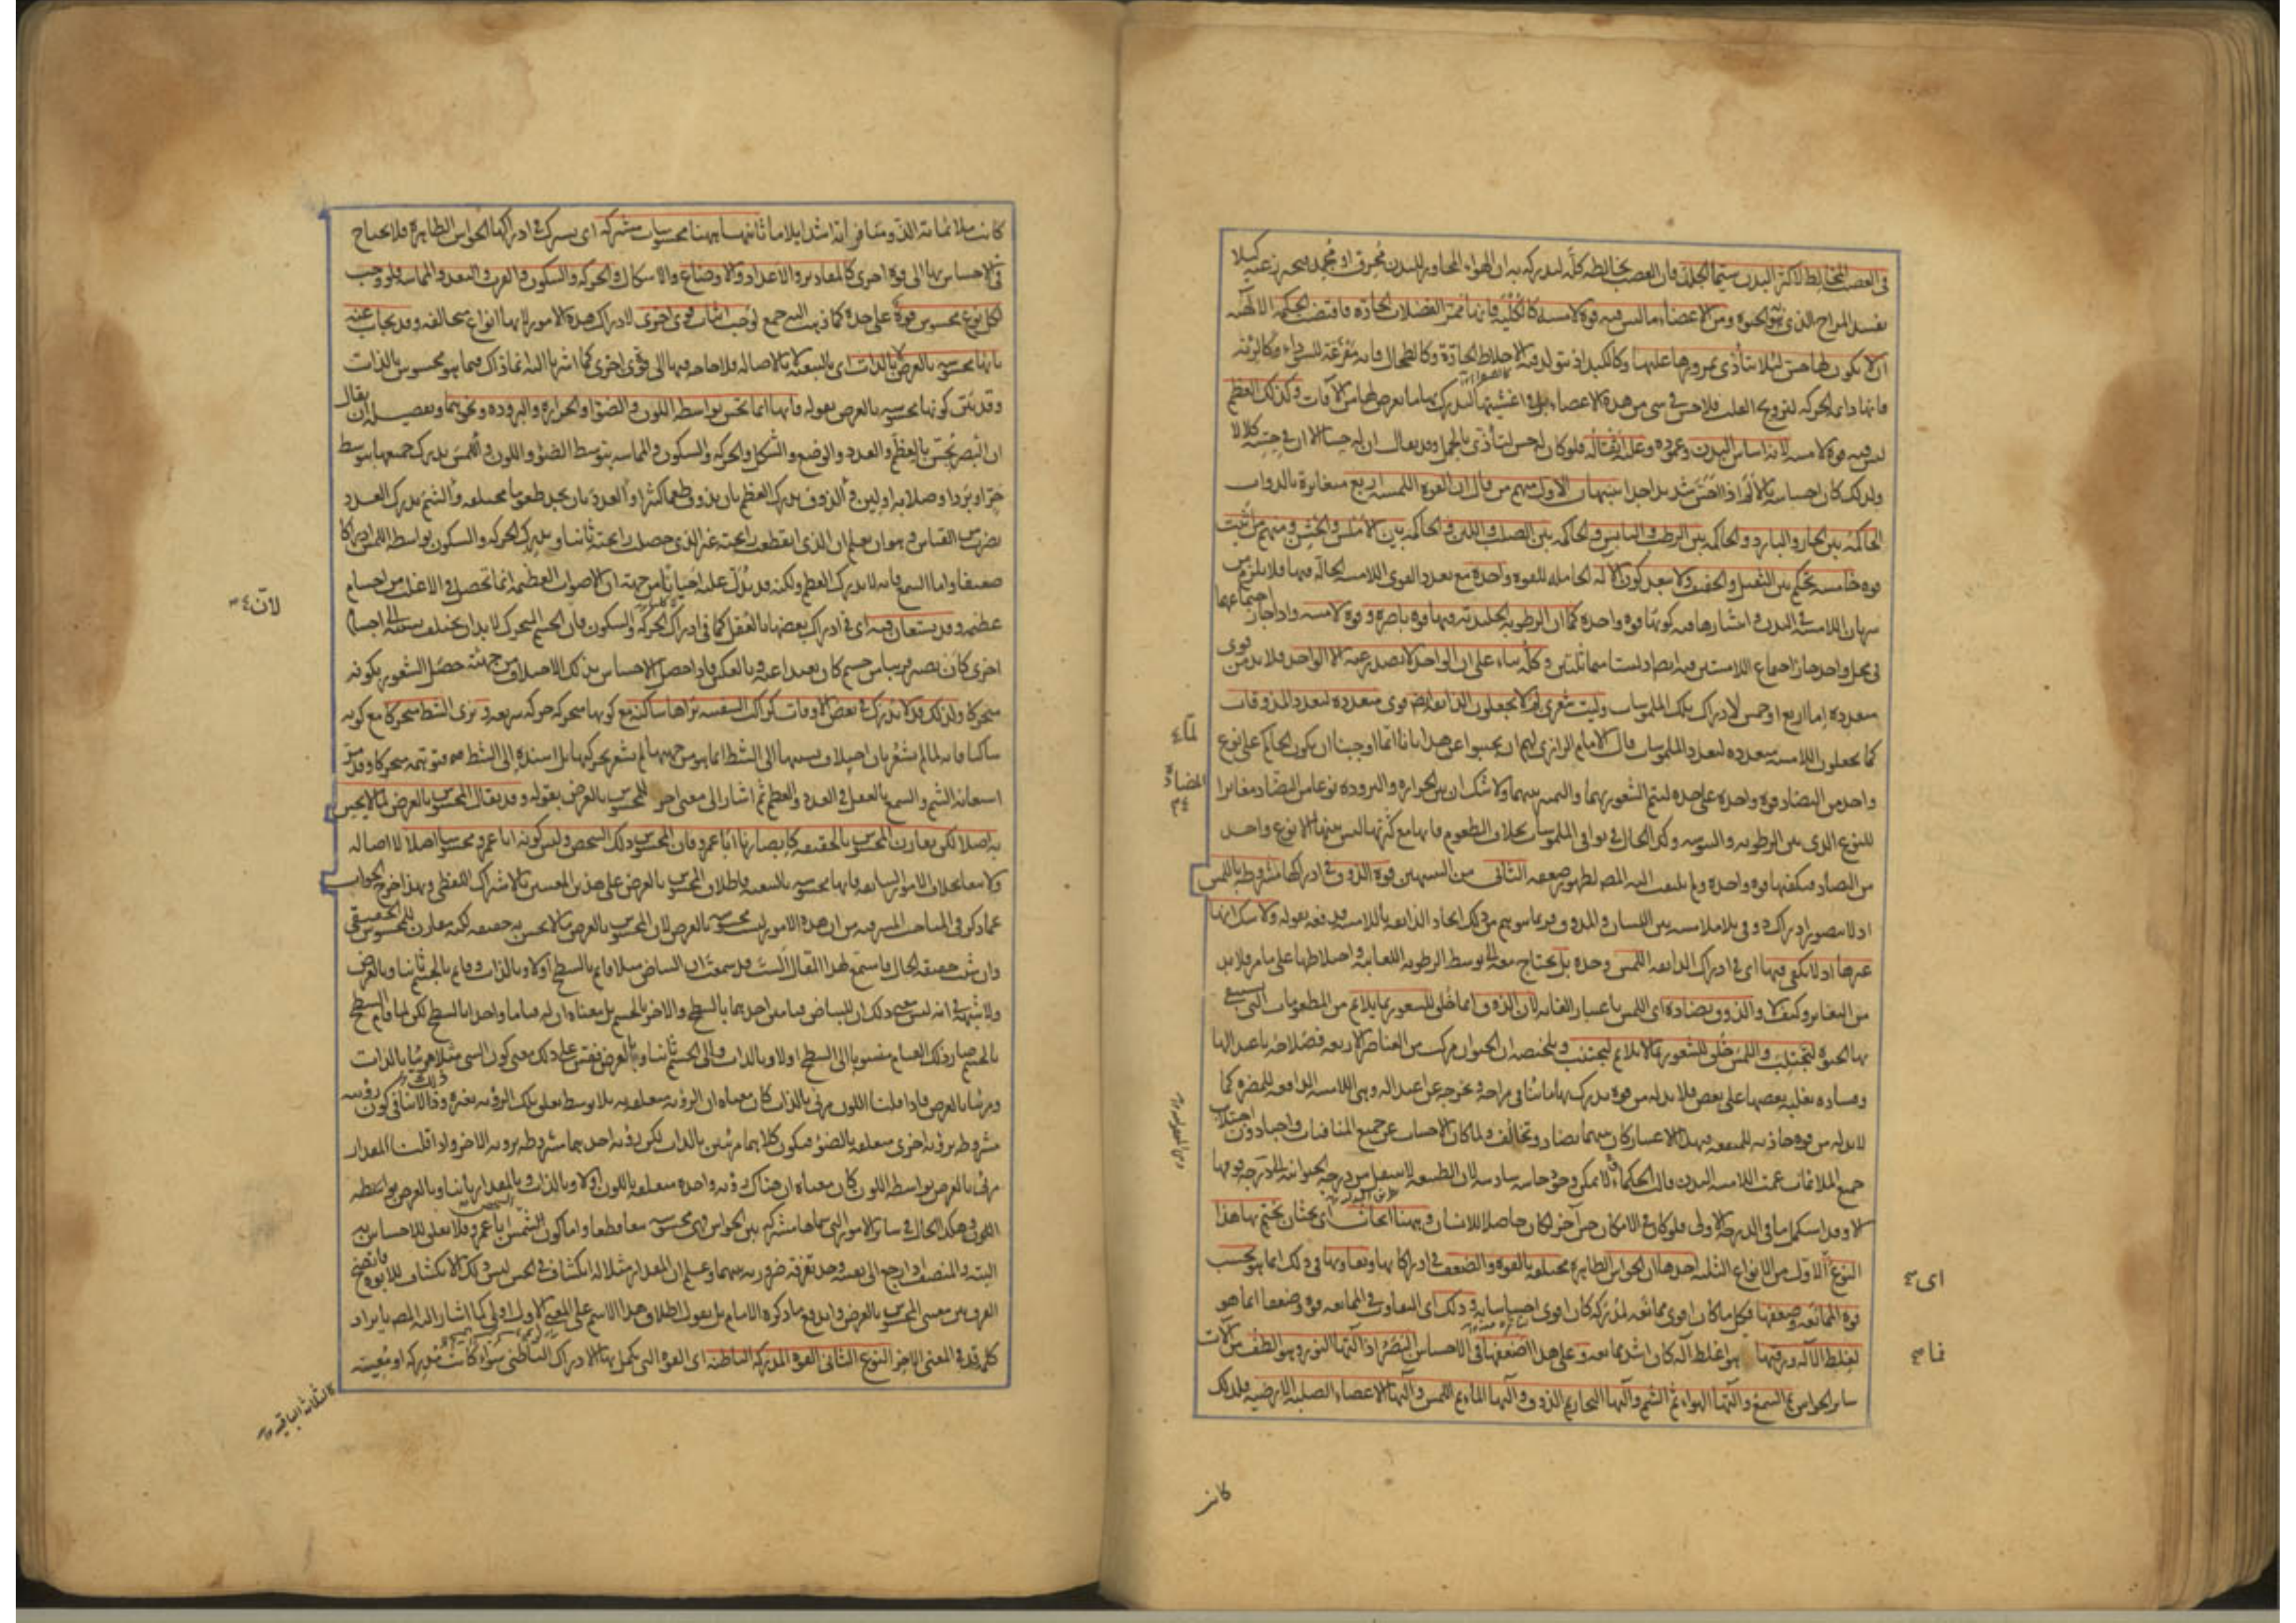 في العصب المخالط لأكثر البدن سيما الجلد فان العصب يخالطه كله ليدرك به ان الهواء المجاور للبدن محرق او مجمد فيتحرز عنه كيلا
يفسد المزاج الذي به الحيوة ومن الاعضاء ما ليس فيه قوة لامسة كالكلية فانها ممر الفضلات الحادة فاقتضت الحكمة الالهية
ان لا يكون لها حس لئلا يتأذى بمرورها عليها وكالكبد اذ يتولد فيه الاخلاط الحادة وكالطحال فانه مفرغة للسوداء وكالرئة
فانها دائمة الحركة لترويح القلب فلا حس في شيء من هذه الاعضاء بل في اغشيتها ليدرك بها ما يعرض لها من الآفات وكذلك العظم
ليس فيه قوة لامسة لانه اساس البدن وعموده وعليه اثقاله فلو كان له حس لتأذى بالحمل وقد يقال ان له حسا الا ان في حسه كلالا
ولذلك كان احساسه بالألم اذا احس شديدا جدا تنبيهان الاول منهم من قال ان القوة اللمسية اربع متغايرة بالذوات
الحاكمة بين الحار والبارد والحاكمة بين الرطب واليابس والحاكمة بين الصلب واللين والحاكمة بين الاملس والخشن ومنهم من اثبت
قوة خامسة تحكم بين الثقيل والخفيف ولا يبعد كون الآلة الحاملة للقوة واحدة مع تعدد القوى اللامسة الحالة فيها فلا يلزم من
سريان اللامسة في البدن وانتشارها فيه كونها قوة واحدة كما ان الرطوبة الجليدية فيها قوة باصرة وقوة لامسة واذا جاز اجتماعهما
في محل واحد جاز اجتماع اللامستين فيه ايضا وليستا متماثلتين وكله بناء على ان الواحد لا يصدر عنه الا الواحد فلا بد من قوى
متعددة اما اربع او خمس لادراك تلك الملموسات وليت شعري لم لا يجعلون الذائقة ايضا قوى متعددة لتعدد المذوقات
كما يجعلون اللامسة متعددة لتعدد الملموسات قال الامام الرازي لهم ان يجيبوا عن هذا بانا انما اوجبنا ان يكون الحاكم على نوع
واحد من التضاد قوة واحدة على حدة ليتم الشعور بهما والتمييز بينهما ولا شك ان بين الحرارة والبرودة نوعا من التضاد مغايرا
للنوع الذي بين الرطوبة واليبوسة وكذا الحال في بواقي الملموسات بخلاف الطعوم فانها مع كثرتها ليس بينها الا نوع واحد
من التضاد فيكفيها قوة واحدة ولم يلتفت اليه المص لظهور ضعفه الثاني من التنبيهين قوة الذوق في ادراكها مشروطة باللمس
اذ لا يتصور ادراك ذوقي بلا ملامسة بين اللسان والمذوق فربما يتوهم من ذلك اتحاد الذائقة باللامسة فدفعه بقوله ولا شك انها
غيرها اذ لا يكفي فيها اي في ادراك الذائقة اللمس وحده بل يحتاج معه الى توسط الرطوبة اللعابية واختلاطها على ما مر فلا بد
من التغاير وكيف لا والذوق يضاده اي اللمس باعتبار الغاية لان الذوق انما خلق للشعور بما يلائم من المطعومات التي يستبقى
بها الحيوة ليجتلب واللمس خلق للشعور بما لا يلائم ليجتنب وتلخيصه ان الحيوان مركب من العناصر الاربعة فصلاحه باعتدالها
وفساده بغلبة بعضها على بعض فلا بد له من قوة يدرك بها ما ينافي مزاجه ويخرجه عن اعتداله وهي اللامسة الدافعة للمضرة كما
لا بد له من قوة جاذبة للمنفعة فبهذا الاعتبار كان بينهما تضاد وتخالف ولما كان الاحساس عن جميع المنافيات واجبا دون اجتلاب
جميع الملائمات عمت اللامسة البدن قالت الحكماء لا يمكن وجود حاسة سادسة لان الطبيعة لا تنتقل من درجة الحيوانية الى درجة فوقها
الا وقد استكمل ما في الدرجة الاولى فلو كان في الامكان حس آخر لكان حاصلا للانسان وههنا ابحاث اي بحثان يختم بها هذا
النوع الاول من الانواع الثلثة احدها ان الحواس الظاهرة مختلفة بالقوة والضعف في ادراكاتها وتفاوتها في ذلك انما هو بحسب
قوة الممانعة وضعفها فكل ما كان اقوى ممانعة لمدركه كان اقوى احساسا به وذلك اي التفاوت في الممانعة قوة وضعفا انما هو
لغلظ الآلة ورقتها فما هو اغلظ آلة كان اشد ممانعة وعلى هذا اضعفها في الاحساس البصر اذ آلتها النور وهو الطف من آلات
سائر الحواس ثم السمع وآلتها الهواء ثم الشم وآلتها البخار ثم الذوق وآلتها الماء ثم اللمس وآلتها الاعضاء الصلبة الارضية فلذلك
كانت
لما
اي
فما
كانت ملائماته الذ ومنافراته اشد ايلاما ثانيها ههنا محسوسات مشتركة اي يشترك في ادراكها الحواس الظاهرة فلا يحتاج
في الاحساس بها الى قوة اخرى كالمقادير والاعداد والاوضاع والاشكال والحركة والسكون والقرب والبعد والمماسة فلو وجب
لكل نوع محسوس قوة على حدة كما ذهب اليه جمع لوجب اثبات قوى اخرى لادراك هذه الامور لانها انواع متخالفة وقد يجاب عنه
بانها محسوسة بالعرض لا بالذات اي بالتبعية لا بالاصالة فلا حاجة فيها الى قوى اخرى كما اشرنا اليه انما ذاك فيما هو محسوس بالذات
وقد بين كونها محسوسة بالعرض بقوله فانها انما تحس بواسطة اللون والضوء والحرارة والبرودة ونحوها وتفصيله ان يقال
ان البصر يحس بالعظم والعدد والوضع والشكل والحركة والسكون والمماسة بتوسط الضوء واللون واللمس يدرك جميعها بتوسط
حر او برد او صلابة او لين والذوق يدرك العظم بان يذوق طعما كثيرا والعدد بان يجد طعوما مختلفة والشم يدرك العدد
بضرب من القياس وهو ان يعلم ان الذي انقطعت رائحته غير الذي حصلت رائحته ثانيا ويدرك الحركة والسكون بواسطة اللمس ادراكا
ضعيفا واما السمع فانه لا يدرك العظم ولكنه قد يدل عليه احيانا من جهة ان الاصوات العظيمة انما تحصل في الاغلب من اجسام
عظيمة وقد يستعان فيه اي في ادراك بعضها بالعقل كما في ادراك الحركة والسكون فان الجسم المتحرك لا بد ان يختلف نسبته الى اجسام
اخرى كان يصير قريبا من جسم كان بعيدا عنه وبالعكس فاذا حصل الاحساس بذلك الاختلاف من جهته حصل الشعور بكونه
متحركا ولذلك قد لا يدرك في بعض الاوقات كراكب السفينة يراها ساكنة مع كونها متحركة حركة سريعة ويرى الشط متحركا مع كونه
ساكنا فانه لما لم يشعر بان اختلاف نسبتها الى الشط انما هو من جهتها لم يشعر بحركتها بل اسنده الى الشط فتوهمه متحركا وقد مر
استعانة الشم والسمع بالعقل في العدد والعظم ثم اشار الى معنى آخر للمحسوس بالعرض بقوله وقد يقال المحسوس بالعرض لما لا يحس
به اصلا لكن يقارن المحسوس بالحقيقة كابصارنا ابا عمرو فان المحسوس ذلك الشخص وليس كونه ابا عمرو محسوسا اصلا لا اصالة
ولا تبعا بخلاف الامور السابقة فانها محسوسة بالتبعية فاطلاق المحسوس بالعرض على هذين المعنيين بالاشتراك اللفظي وبهذا خرج الجواب
عما ذكر في المباحث المشرقية من ان هذه الامور ليست محسوسة بالعرض لان المحسوس بالعرض ما لا يحس به حقيقة لكنه مقارن للمحسوس الحقيقي
وان شئت حقيقة الحال فاستمع لهذا المقال الست قد سمعت ان البياض مثلا قائم بالسطح اولا وبالذات وقائم بالجسم ثانيا وبالعرض
ولا شبهة في انه ليس معنى ذلك ان للبياض قيامين احدهما بالسطح والآخر بالجسم بل معناه ان له قياما واحدا بالسطح لكن لما قام السطح
بالجسم صار ذلك القيام منسوبا الى السطح اولا وبالذات والى الجسم ثانيا وبالعرض فقس على ذلك معنى كون الشيء مثلا مرئيا بالذات
ومرئيا بالعرض فاذا قلنا اللون مرئي بالذات كان معناه ان الرؤية متعلقة به بلا توسط تعلق تلك الرؤية بغيره وذلك لا ينافي كون رؤيته
مشروطة برؤية اخرى متعلقة بالضوء فيكون كلاهما مرئيين بالذات لكن رؤية احدهما مشروطة برؤية الآخر واذا قلنا المقدار
مرئي بالعرض بواسطة اللون كان معناه ان هناك رؤية واحدة متعلقة باللون اولا وبالذات وبالمقدار ثانيا وبالعرض بواسطة
اللون وهكذا الحال في سائر الامور التي سماها مشتركة بين الحواس فهي محسوسة تبعا قطعا واما كون الشخص ابا عمرو فلا تعلق للاحساس به
البتة والمنصف اذا رجع الى نفسه وجد تفرقة ضرورية بينهما وعلم ان للمقدار مثلا انكشافا في الحس ليس ذلك الانكشاف للابوة فاتضح
الفرق بين معنيي المحسوس بالعرض واندفع ما ذكره الامام بل نقول اطلاق هذا الاسم على المعنى الاول اولى كما اشار اليه المص بايراد
كلمة قد في المعنى الاخير النوع الثاني القوة المدركة الباطنة اي القوة التي يكمل بها الادراك الباطني سواء كانت مدركة او معينة
لان